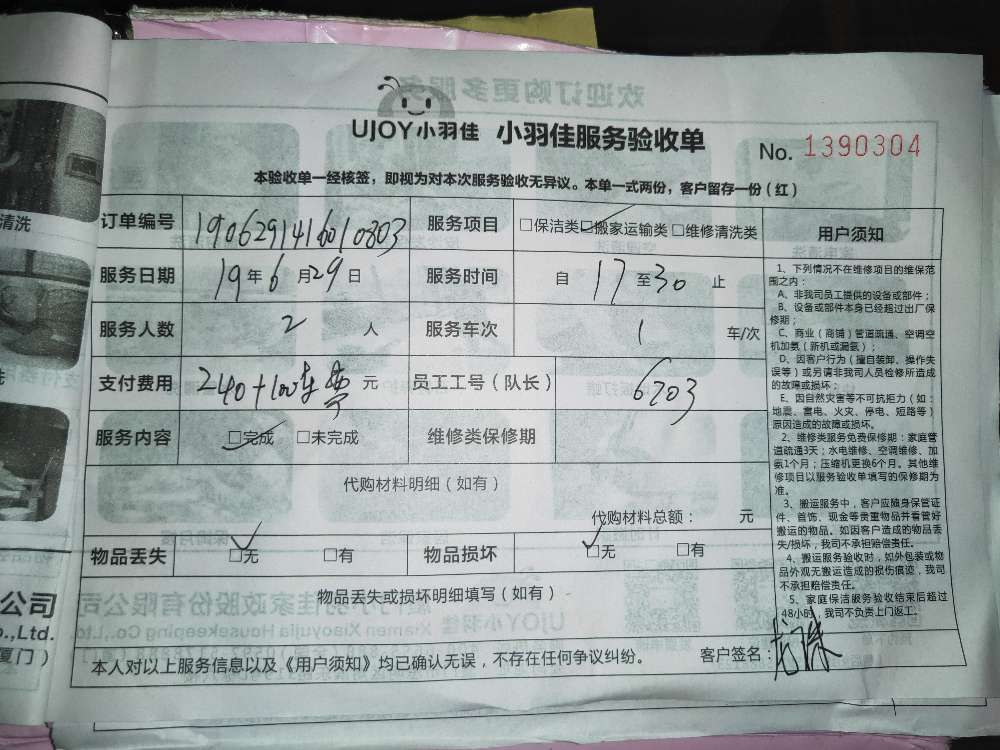 UJOY小羽佳 小羽佳服务验收单
No. 1390304
本验收单一经核签，即视为对本次服务验收无异议。本单一式两份，客户留存一份（红）
订单编号 1906291416010803 服务项目 □保洁类 □搬家运输类 □维修清洗类
服务日期 19年6月29日 服务时间 自 17 至 30 止
服务人数 2 人 服务车次 1 车/次
支付费用 240+100车费 元 员工工号（队长） 6203
服务内容 □完成 □未完成 维修类保修期
代购材料明细（如有）
代购材料总额： 元
物品丢失 □无 □有 物品损坏 □无 □有
物品丢失或损坏明细填写（如有）
本人对以上服务信息以及《用户须知》均已确认无误，不存在任何争议纠纷。 客户签名：
用户须知
1、下列情况不在维修项目的维保范
围之内：
A、非我司员工提供的设备或部件；
B、设备或部件本身已经超过出厂保
修期；
C、商业（商铺）管道疏通、空调空
机加氨（新机或漏氨）；
D、因客户行为（擅自装卸、操作失
误等）或另请非我司人员检修所造成
的故障或损坏；
E、因自然灾害等不可抗拒力（如：
地震、雷电、火灾、停电、短路等）
原因造成的故障或损坏。
2、维修类服务免费保修期：家庭管
道疏通3天；水电维修、空调维修、加
氨1个月；压缩机更换6个月。其他维
修项目以服务验收单填写的保修期为
准。
3、搬运服务中，客户应随身保管证
件、首饰、现金等贵重物品并看管好
搬运的物品。如因客户造成的物品丢
失/损坏，我司不承担赔偿责任。
4、搬运服务验收时，如外包装或物
品外观无搬运造成的损伤痕迹，我司
不承担赔偿责任。
5、家庭保洁服务验收结束后超过
48小时，我司不负责上门返工。
清洗
公司
o.,Ltd.
厦门）